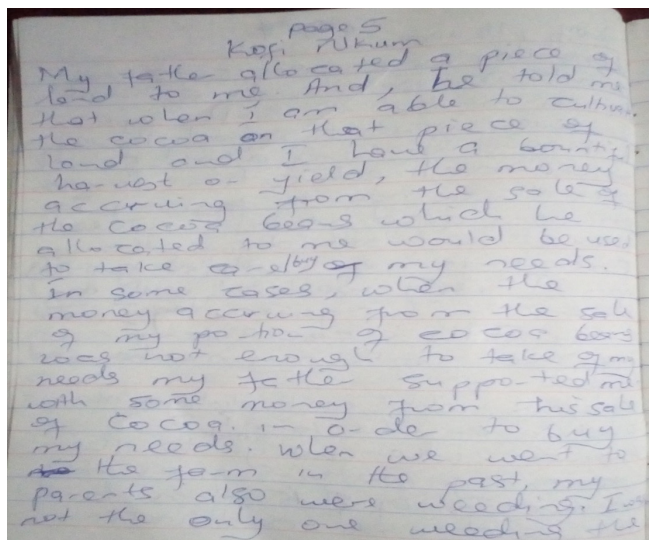 page 5
Kofi Nkum
My father allocated a piece of
land to me. And, he told me
that when i am able to cultivate
the cocoa on that piece of
land and I have a bountiful
harvest or yield, the money
accruing from the sale of
the cocoa beans which he
allocated to me would be used
to take care/buy of my needs.
In some cases, when the
money accruing from the sale
of my portion of cocoa beans
was not enough to take of my
needs my father supported me
with some money from his sale
of cocoa. in order to buy
my needs. When we went to
the farm in the past, my
parents also were weeding. I
not the only one weeding the